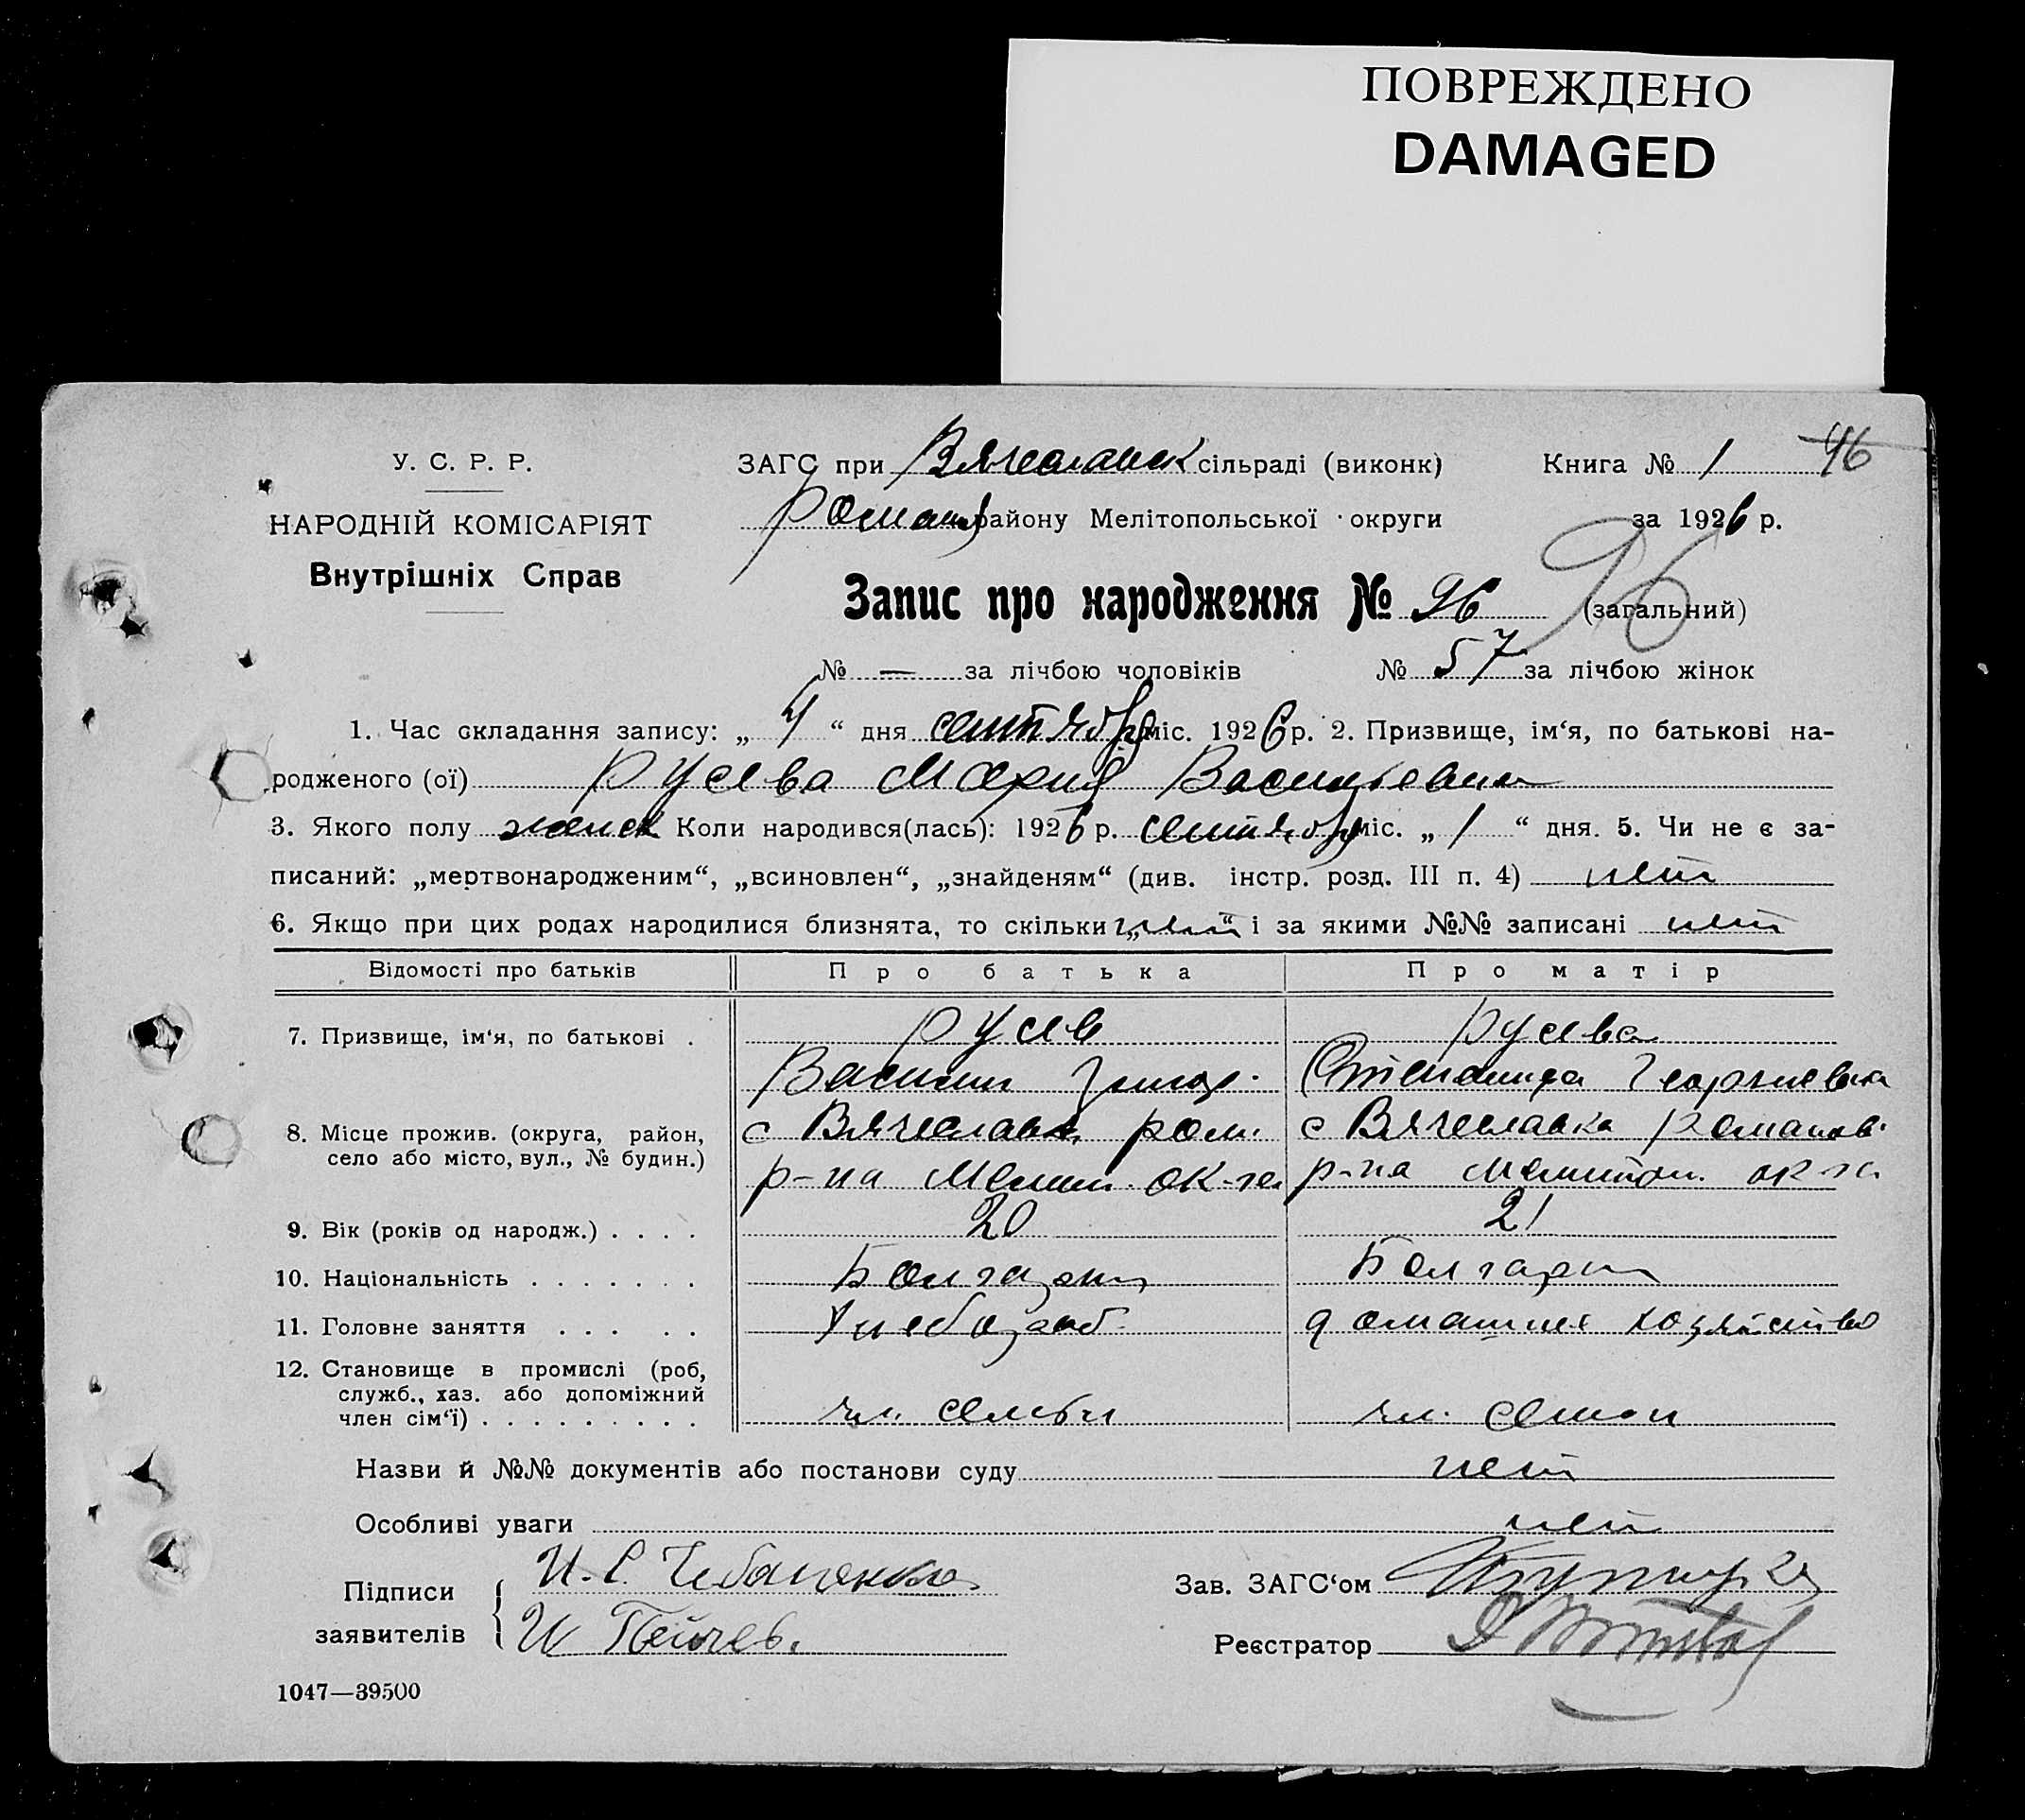 ПОВРЕЖДЕНО
DAMAGED
У. С. Р. Р.
НАРОДНІЙ КОМІСАРІЯТ
Внутрішніх Справ
ЗАГС при Вячеславск сільраді (виконк)
Роман району Мелітопольської округи
Книга № 1 46
за 1926 р.
Запис про народження № 96 (загальний) 96
№ — за лічбою чоловіків № 57 за лічбою жінок
1. Час складання запису: „ 4 “ дня сентября міс. 1926 р. 2. Призвище, ім‘я, по батькові на-
родженого (ої) Русева Мария Васильевна
3. Якого полу женск Коли народився(лась): 1926 р. сентября міс. „ 1 “ дня. 5. Чи не є за-
писаний: „мертвонародженим“, „всиновлен“, „знайденям“ (див. інстр. розд. III п. 4) нет
6. Якщо при цих родах народилися близнята, то скільки „нет“ і за якими №№ записані нет
Відомості про батьків Про батька Про матір
7. Призвище, ім‘я, по батькові . Русев Русева
Василий Григор. Степанида Георгиевна
8. Місце прожив. (округа, район, с Вячеславка Ром. с Вячеславка Романов.
село або місто, вул., № будин.) р-на Мелит. ок-га р-на Мелитоп. ок-га
9. Вік (років од народж.) . . . . 20 21
10. Національність . . . . . . . Болгарин Болгарк
11. Головне заняття . . . . . Хлебороб домашнее хозяйство
12. Становище в промислі (роб,
служб., хаз. або допоміжний
член сім‘ї) . . . . . . . . . чл. семьи чл. семьи
Назви й №№ документів або постанови суду нет
Особливі уваги нет
Підписи
заявителів
И. С. Чебаненко
И Пейчев.
Зав. ЗАГС‘ом
Реєстратор
1047—39500